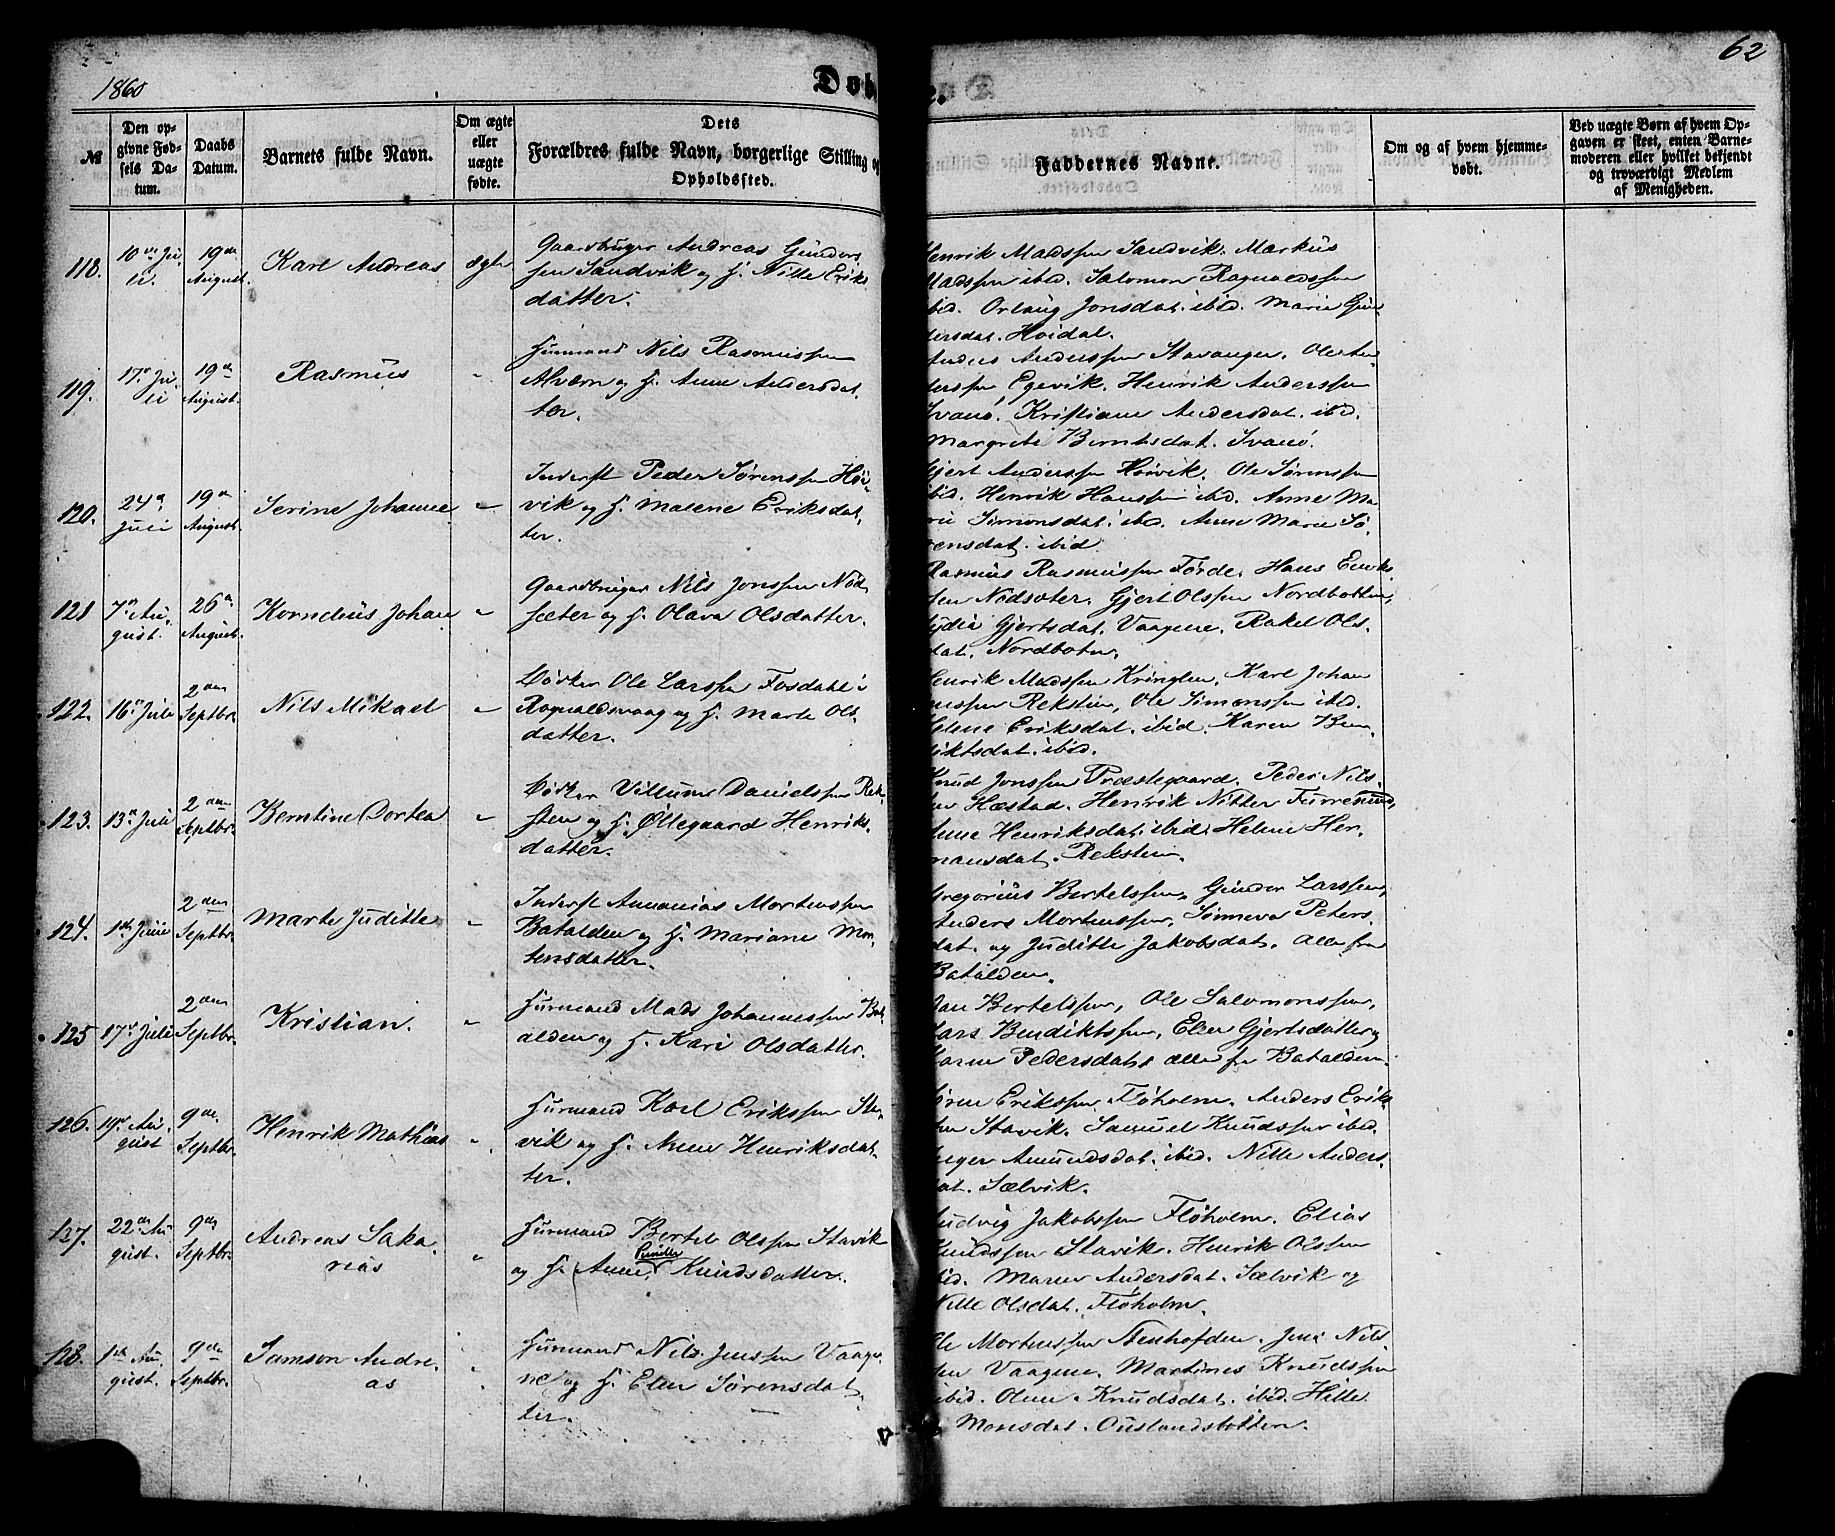 1860
Døb
62
№
Den op-
givne Fød-
sels Da-
tum.
Daabs
Datum.
Barnets fulde Navn.
Om ægte
eller
uægte
fødte.
Dets
Forældres fulde Navn, borgerlige Stilling og
Opholdssted.
Faddernes Navne.
Om og af hvem hjemme-
døbt.
Ved uægte Børn af hvem Op-
gaven er skeet, enten Barne-
moderen eller hvilket bekjendt
og troværdigt Medlem
af Menigheden.
118.
10de Ju-
li.
19de
August.
Karl Andreas
ægte
Gaardbruger Andreas Gunders
sen Sandvik og H. Nille Eriks
datter.
Henrik Madssen Sandvik. Markus
Madssen ibid. Salomon Ragnaldssen
ibid. Orlaug Jonsdat. ibid. Marie Gun
dersdat. Høidal.
119.
17de Ju-
li
19de
August.
Rasmus
"
Huusmand Nils Rasmussen
Alværn og H. Anne Andersdat-
ter.
Anders Anderssen Stavanger. Ole An
derssen Egevik. Henrik Anderssen
Svanø. Kristiane Andersdat. ibid.
Margrete Berntsdat. Svanø.
120.
24de
Juli
19de
August.
Serine Johanne
"
Inderst Peder Sørenssen Høi-
vik og H. Malene Eriksdat-
ter.
Gjert Anderssen Høivik. Ole Sørenssen
ibid. Henrik Hanssen ibid. Anne Ma
rie Simonsdat. ibid. Anne Marie Sø
rensdat. ibid.
121
7de Au-
gust.
26de
August.
Kornelius Johan
"
Gaardbruger Nils Jonssen Nød-
sæter og H. Olava Olsdatter.
Rasmus Rasmussen Førde. Hans Enoks
sen Nødsæter. Gjert Olssen Nordbotten,
Lydia Gjertsdat. Vaagene. Rakel Ols-
dat. Nordboten.
122.
16de Juli
2den
Septbr.
Nils Mikael
"
Bødker Ole Larssen Fosdahl i
Rognaldsvaag og H. Marte Ols-
datter.
Henrik Madssen Kringlen, Karl Johan
Rekstien, Ole Simonssen ibid.
Helene Eriksdat. ibid. Karen Ben
diktsdat. ibid.
123.
13de Juli
2den
Septbr.
Berntine Dortea
"
Bødker Villum Danielssen Rek-
sten og H. Øllegaard Henriks-
datter.
Knud Jonssen Præstegaard. Peder Nils-
sen Hæstad. Henrik Nitter Furresund,
Anne Henriksdat. ibid. Helene Her-
mansdat. Rekstien.
124.
1ste Juni
2den
Septbr.
Marte Juditte
"
Inderst Annanias Mortenssen
Batalden og H. Mariane Mor-
tensdatter.
Gregorius Bertelssen, Gunder Larssen,
Anders Mortenssen, Sønneva Peters
dat. og Juditte Jakobsdat. Alle fra
Batalden.
125
17de Juli
2den
Septbr.
Kristian.
"
Huusmand Mads Johannessen Bat-
alden og H. Kari Olsdatter.
Jan Bertelssen, Ole Salomonssen,
Lars Bendiktssen, Elen Gjertsdatter og
Maren Pedersdat. alle fra Batalden
126.
19de Au-
gust
9de
Septbr.
Henrik Mathias
"
Huusmand Karl Erikssen Sta-
vik og H. Anne Henriksdat-
ter.
Søren Erikssen Fløholm. Anders Erik
sen Stavik. Samuel Knudssen ibid.
Inger Amundsdat. ibid. Nille Anders-
dat. Sælvik.
127.
22de Au-
gust.
9de
Septbr.
Andreas Saka-
rias
"
Huusmand Bertel Olssen Stavik
og H. Anne Pernille Knudsdatter.
Ludvig Jakobssen Fløholm. Elias
Knudssen Stavik. Henrik Olssen
ibid. Maren Andersdat. Sælvik og
Nille Olsdat. Fløholm.
128.
1ste Au-
gust.
9de
Septbr.
Samson Andre-
as
"
Huusmand Nils Jenssen Vaage-
ne og H. Elen Sørensdat-
ter.
Ole Mortenssen Stenhofden. Jens Nils
sen Vaagene. Martines Knudssen
ibid. Oline Knudsdat. ibid. Hille
Monsdat. Ouslandsbotten.